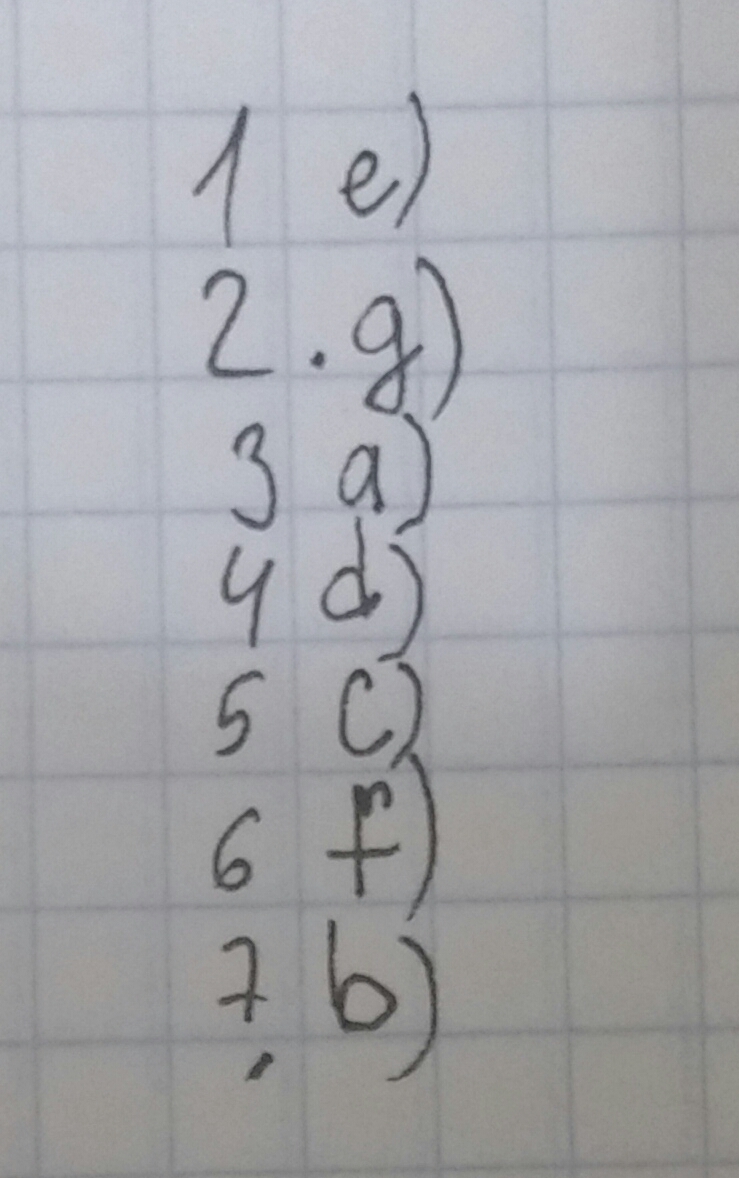 1 e)
2. g)
3 a)
4 d)
5 c)
6 f)
7. b)